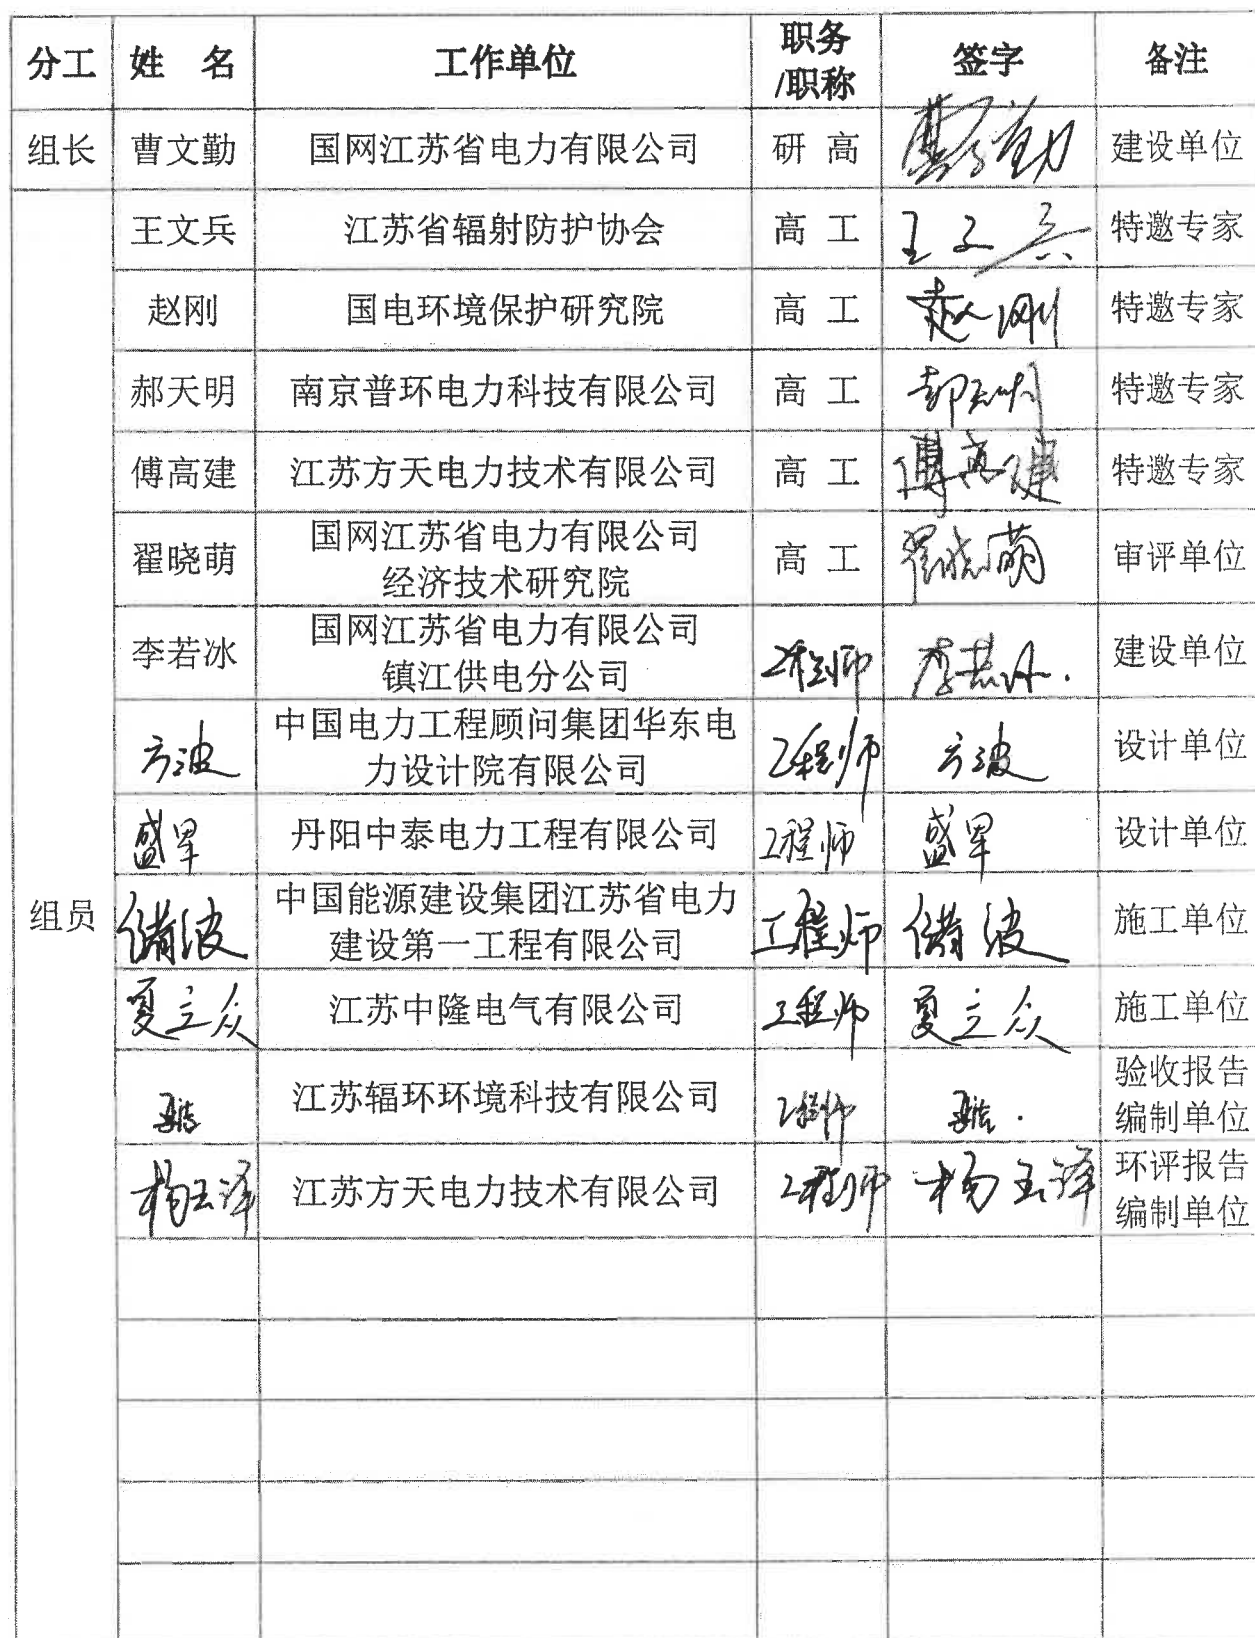 分工 姓 名 工作单位 职务/职称 签字 备注
组长 曹文勤 国网江苏省电力有限公司 研 高 曹文勤 建设单位
王文兵 江苏省辐射防护协会 高 工 王文兵 特邀专家
赵刚 国电环境保护研究院 高 工 赵刚 特邀专家
郝天明 南京普环电力科技有限公司 高 工 郝天明 特邀专家
傅高建 江苏方天电力技术有限公司 高 工 傅高建 特邀专家
翟晓萌 国网江苏省电力有限公司
经济技术研究院 高 工 翟晓萌 审评单位
李若冰 国网江苏省电力有限公司
镇江供电分公司 工程师 李若冰 建设单位
方波 中国电力工程顾问集团华东电
力设计院有限公司 工程师 方波 设计单位
丹阳中泰电力工程有限公司 工程师 设计单位
组员 中国能源建设集团江苏省电力
建设第一工程有限公司 工程师 施工单位
夏立众 江苏中隆电气有限公司 工程师 夏立众 施工单位
江苏辐环环境科技有限公司 工程师 验收报告
编制单位
杨玉泽 江苏方天电力技术有限公司 工程师 杨玉泽 环评报告
编制单位